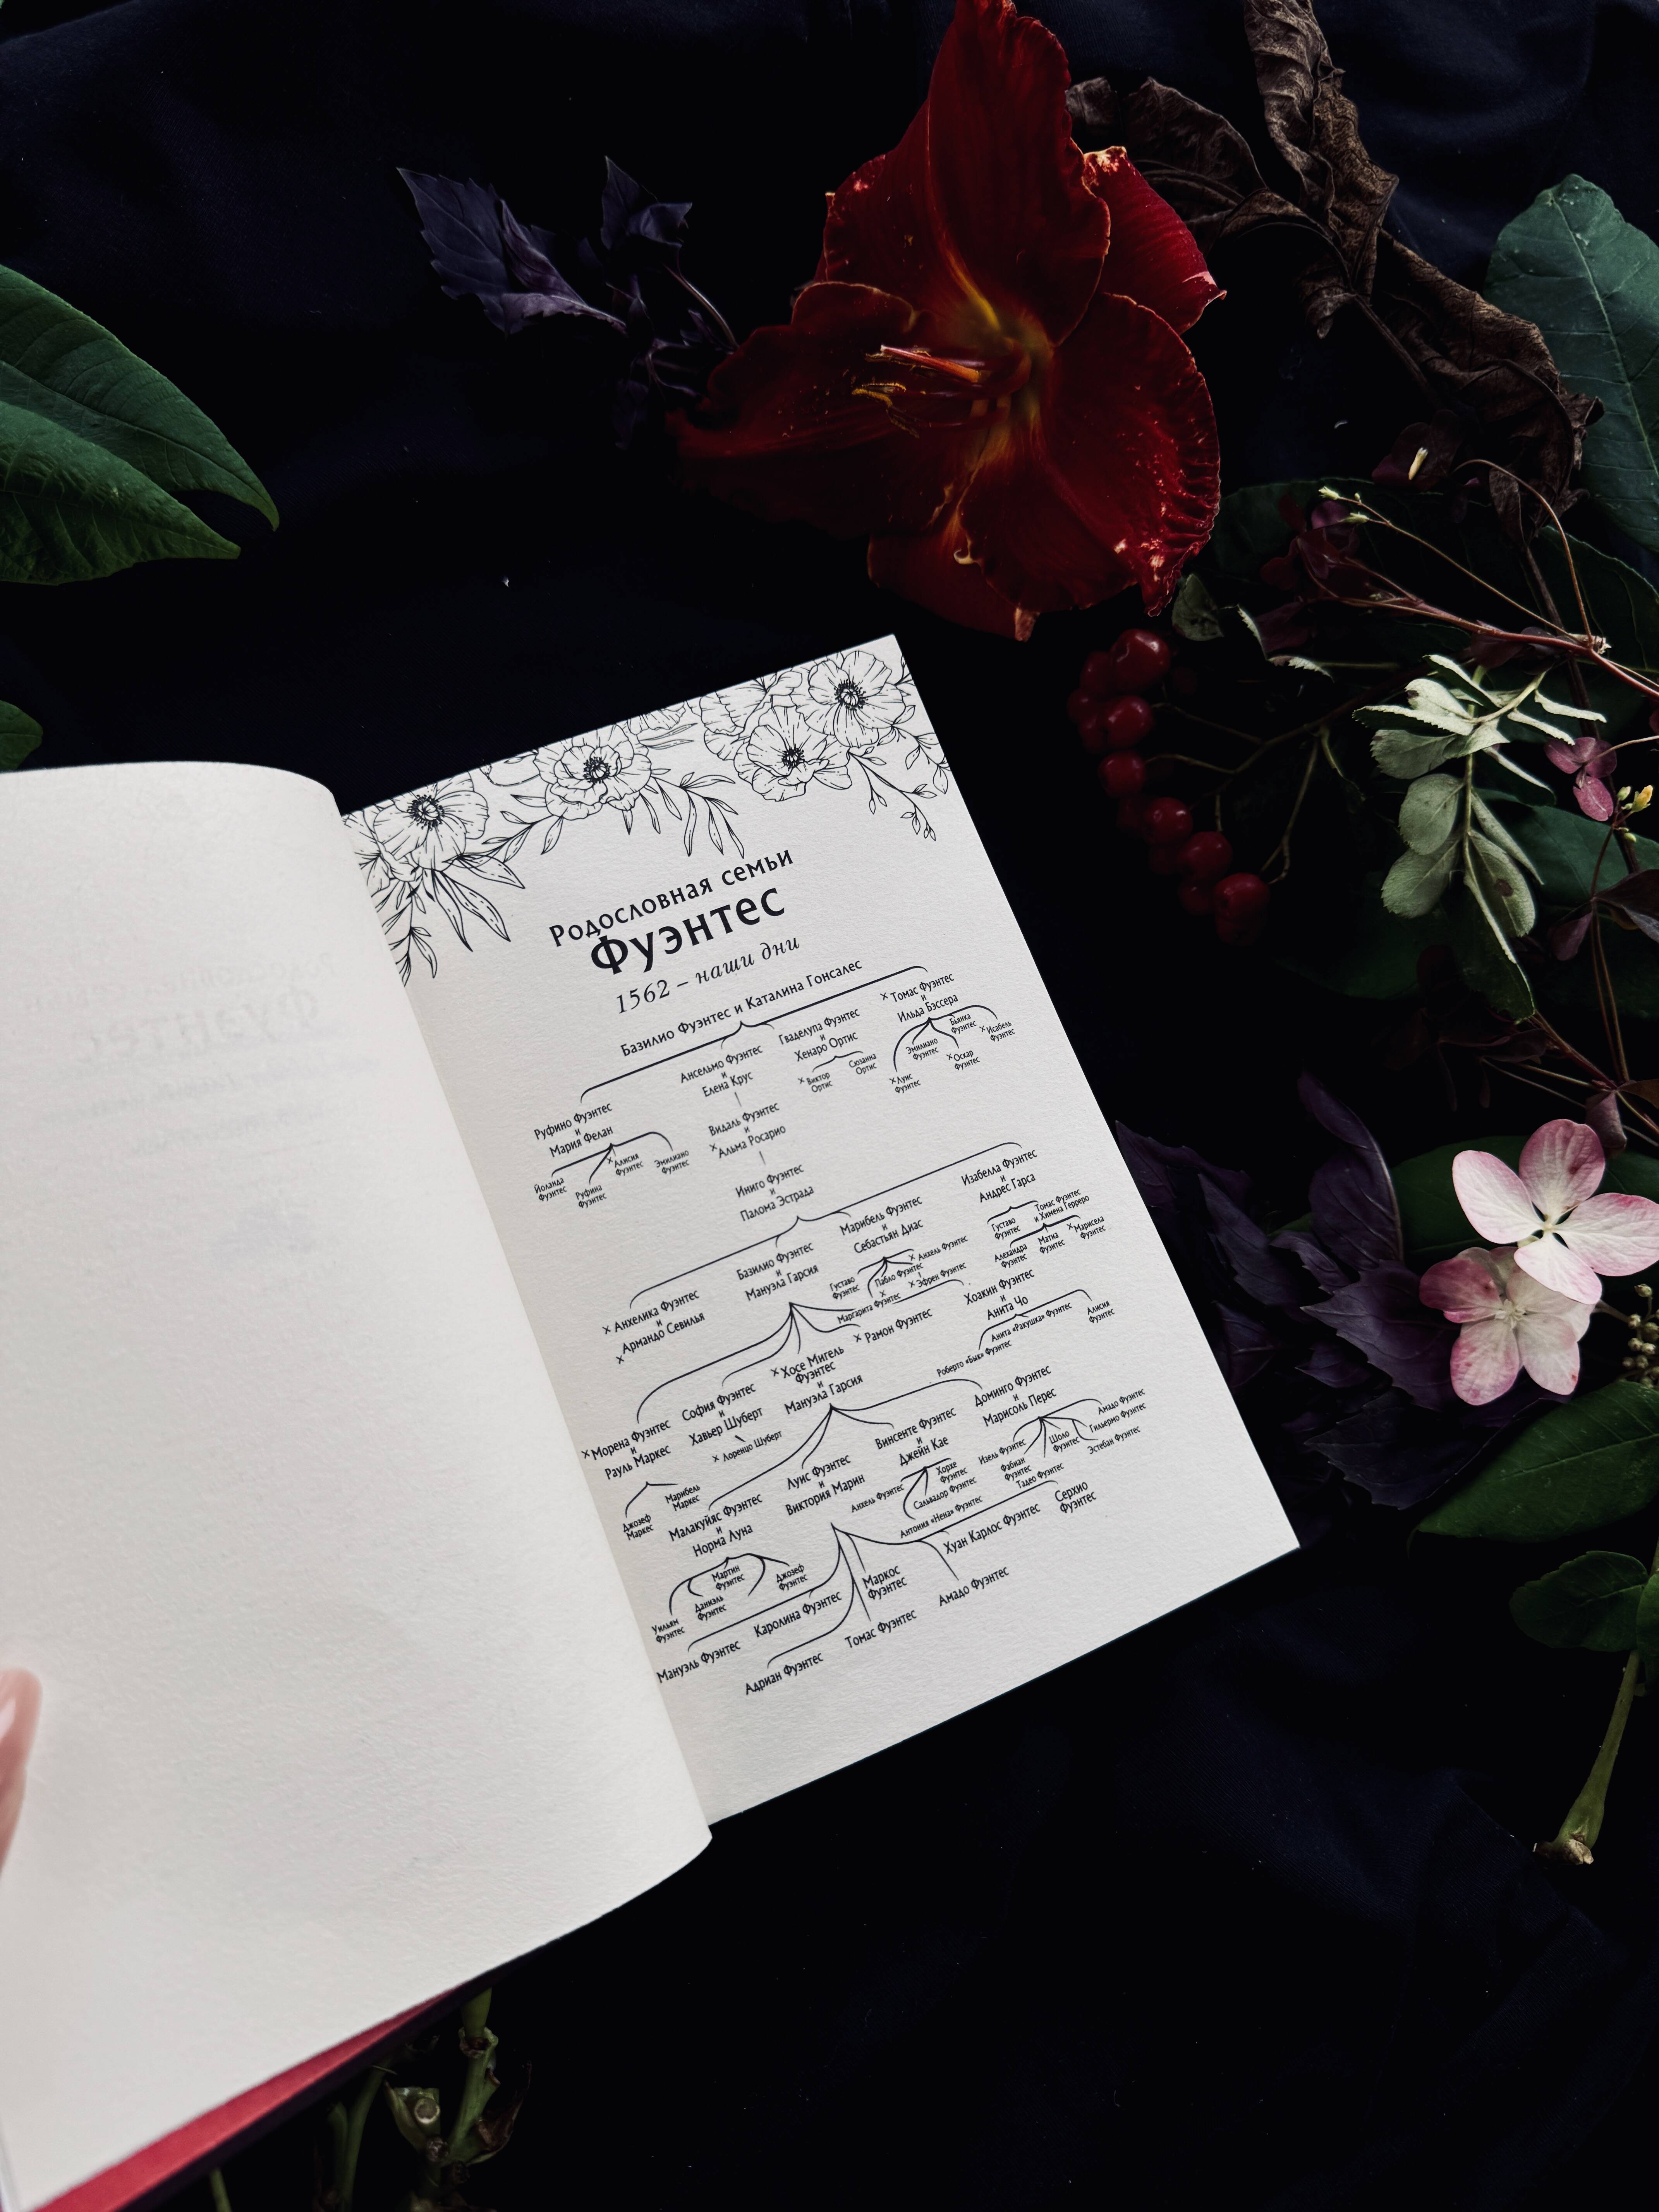 Родословная семьи
Фуэнтес
1562 – наши дни
Базилио Фуэнтес и Каталина Гонсалес
Руфино Фуэнтес
и
Мария Фелан
Йоланда
Фуэнтес
Руфина
Фуэнтес
× Алисия
Фуэнтес
Эмилиано
Фуэнтес
Ансельмо Фуэнтес
и
Елена Крус
Видаль Фуэнтес
и
× Альма Росарио
Иниго Фуэнтес
и
Палома Эстрада
Гваделупа Фуэнтес
и
Хенаро Ортис
× Виктор
Ортис
Сюзанна
Ортис
× Томас Фуэнтес
и
Ильда Бэссера
× Луис
Фуэнтес
Эмилиано
Фуэнтес
Бьянка
Фуэнтес
× Оскар
Фуэнтес
× Исабель
Фуэнтес
× Анхелика Фуэнтес
и
× Армандо Севилья
Базилио Фуэнтес
и
Мануэла Гарсия
Марибель Фуэнтес
и
Себастьян Диас
Густаво
Фуэнтес
Пабло Фуэнтес
× Анхель Фуэнтес
× Эфрен Фуэнтес
×
Маргарита Фуэнтес
Изабелла Фуэнтес
и
Андрес Гарса
Густаво
Фуэнтес
Томас Фуэнтес
и Химена Герреро
Алехандра
Фуэнтес
Матиа
Фуэнтес
× Марисела
Фуэнтес
× Морена Фуэнтес
и
Рауль Маркес
Джозеф
Маркес
Марибель
Маркес
София Фуэнтес
и
Хавьер Шуберт
× Лоренцо Шуберт
× Хосе Мигель
Фуэнтес
и
Мануэла Гарсия
× Рамон Фуэнтес
Хоакин Фуэнтес
и
Анита Чо
Роберто «Бык» Фуэнтес
Анита «Ракушка» Фуэнтес
Алисия
Фуэнтес
Малакуйяс Фуэнтес
и
Норма Луна
Уильям
Фуэнтес
Даниэль
Фуэнтес
Мартин
Фуэнтес
Джозеф
Фуэнтес
Луис Фуэнтес
и
Виктория Марин
Винсенте Фуэнтес
и
Джейн Кае
Анхель Фуэнтес
Хорхе
Фуэнтес
Сальвадор Фуэнтес
Антония «Нена» Фуэнтес
Доминго Фуэнтес
и
Марисоль Перес
Изель Фуэнтес
Фабиан
Фуэнтес
Тадео Фуэнтес
Шоло
Фуэнтес
Амадо Фуэнтес
Гильермо Фуэнтес
Эстебан Фуэнтес
Мануэль Фуэнтес
Каролина Фуэнтес
Адриан Фуэнтес
Маркос
Фуэнтес
Томас Фуэнтес
Амадо Фуэнтес
Хуан Карлос Фуэнтес
Серхио
Фуэнтес